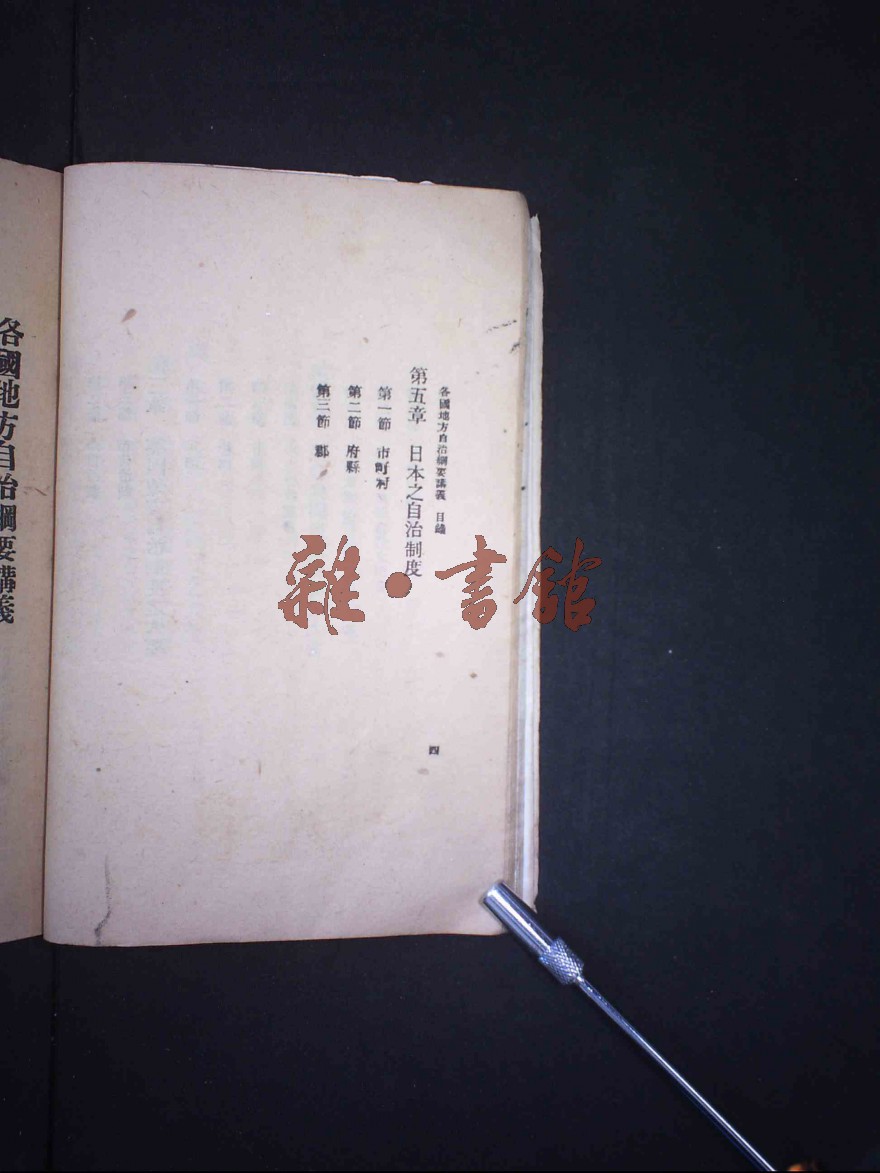 各國地方自治綱要講義 目錄
第五章 日本之自治制度
第一節 市町村
第二節 府縣
第三節 郡
四
各國地方自治綱要講義
雜·書館